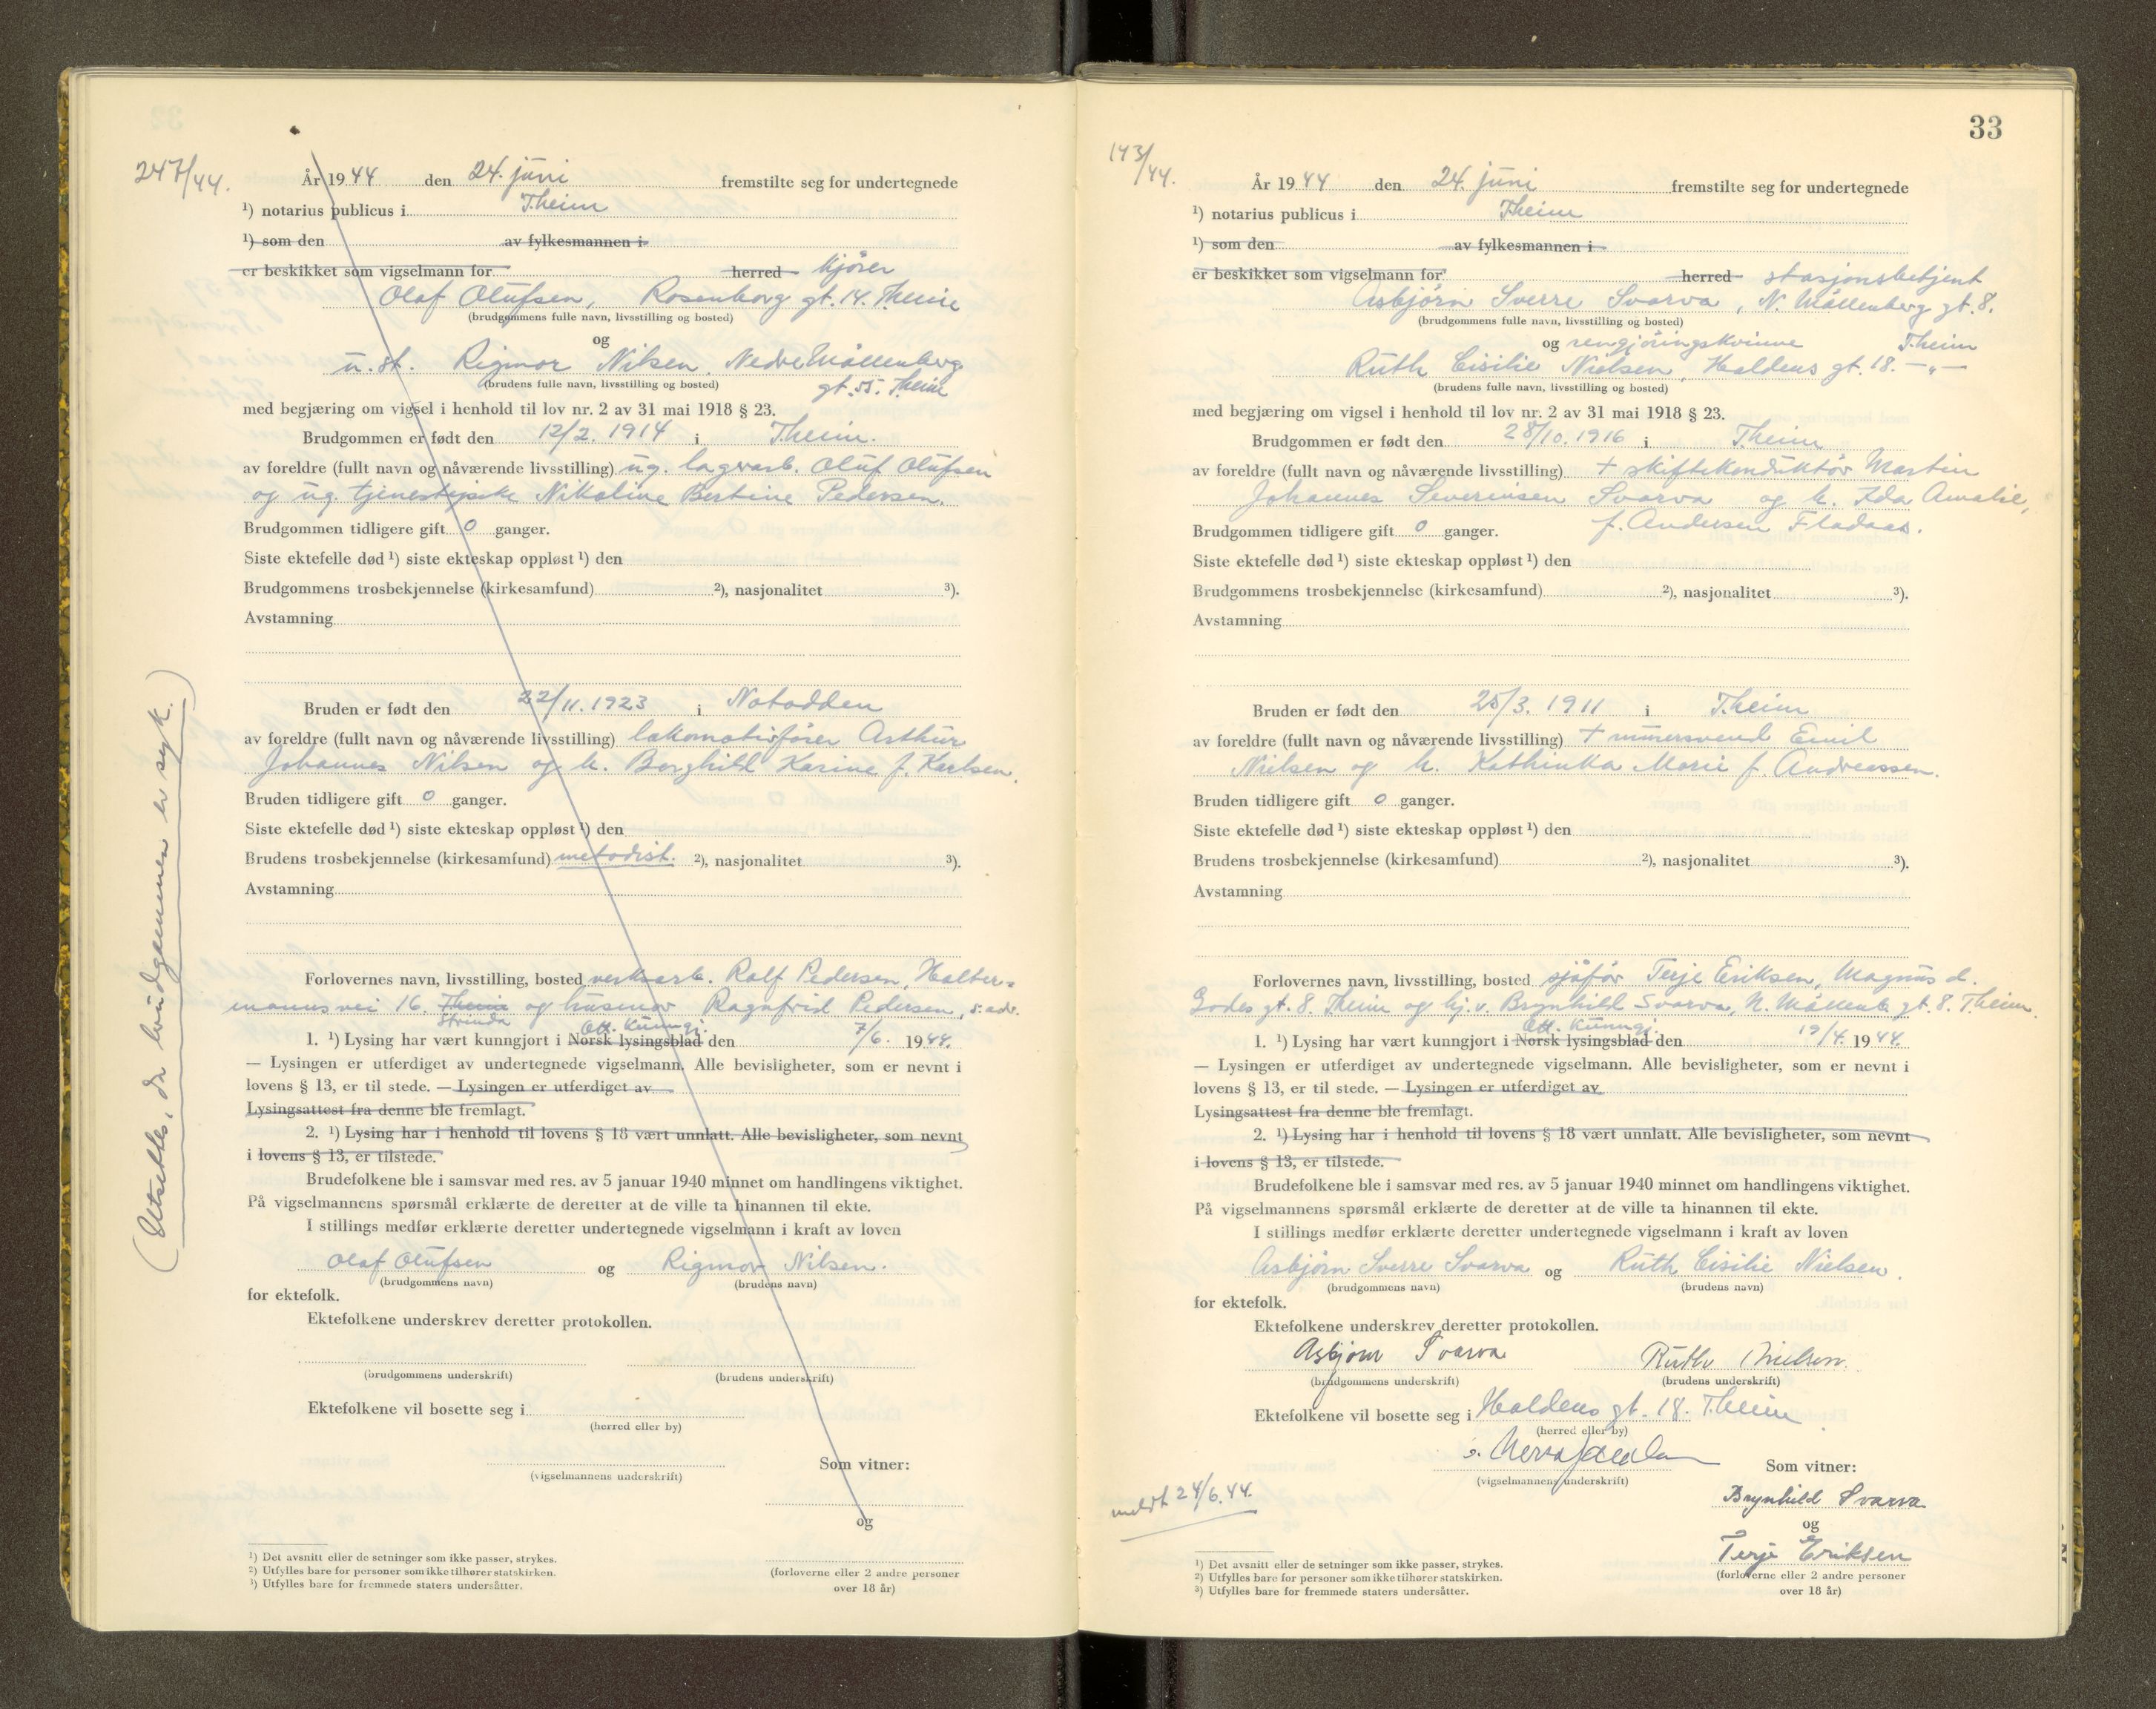 247/44.
År 1944 den 24. juni fremstilte seg for undertegnede
¹) notarius publicus i T.heim
¹) som den av fylkesmannen i
er beskikket som vigselmann for herred kjører
Olaf Olufsen, Rosenborg gt. 14. T.heim
(brudgommens fulle navn, livsstilling og bosted)
og
u. st. Rigmor Nilsen, Nedre Møllenberg
(brudens fulle navn, livsstilling og bosted) gt. 55. T.heim
med begjæring om vigsel i henhold til lov nr. 2 av 31 mai 1918 § 23.
Brudgommen er født den 12/2. 1914 i T.heim.
av foreldre (fullt navn og nåværende livsstilling) ug. lagerarb. Oluf Olufsen
og ug. tjenestepike Nikoline Bertine Pedersen.
Brudgommen tidligere gift 0 ganger.
Siste ektefelle død ¹) siste ekteskap oppløst ¹) den
Brudgommens trosbekjennelse (kirkesamfund) ²), nasjonalitet ³).
Avstamning
Bruden er født den 22/11. 1923 i Notodden
av foreldre (fullt navn og nåværende livsstilling) lokomotivfører Arthur
Johannes Nilsen og h. Borghild Karine f. Karlsen.
Bruden tidligere gift 0 ganger.
Siste ektefelle død ¹) siste ekteskap oppløst ¹) den
Brudens trosbekjennelse (kirkesamfund) metodist. ²), nasjonalitet ³).
Avstamning
Forlovernes navn, livsstilling, bosted verksarb. Ralf Pedersen, Halter-
manns vei 16. T.heim og husmor Ragnfrid Pedersen, s. adr.
Strinda Off. kunngj.
1. ¹) Lysing har vært kunngjort i Norsk lysingsblad den 7/6. 1944.
— Lysingen er utferdiget av undertegnede vigselmann. Alle bevisligheter, som er nevnt i
lovens § 13, er til stede. — Lysingen er utferdiget av
Lysingsattest fra denne ble fremlagt.
2. ¹) Lysing har i henhold til lovens § 18 vært unnlatt. Alle bevisligheter, som nevnt
i lovens § 13, er tilstede.
Brudefolkene ble i samsvar med res. av 5 januar 1940 minnet om handlingens viktighet.
På vigselmannens spørsmål erklærte de deretter at de ville ta hinannen til ekte.
I stillings medfør erklærte deretter undertegnede vigselmann i kraft av loven
Olaf Olufsen og Rigmor Nilsen.
(brudgommens navn) (brudens navn)
for ektefolk.
Ektefolkene underskrev deretter protokollen.
(brudgommens underskrift) (brudens underskrift)
Ektefolkene vil bosette seg i
(herred eller by)
(vigselmannens underskrift) Som vitner:
og
¹) Det avsnitt eller de setninger som ikke passer, strykes.
²) Utfylles bare for personer som ikke tilhører statskirken.
³) Utfylles bare for fremmede staters undersåtter.
(forloverne eller 2 andre personer
over 18 år)
(Utsettes, da brudgommen er syk.)
33
143/44.
År 1944 den 24. juni fremstilte seg for undertegnede
¹) notarius publicus i T.heim
¹) som den av fylkesmannen i
er beskikket som vigselmann for herred stasjonsbetjent
Asbjørn Sverre Svarva, N. Møllenberg gt. 8.
(brudgommens fulle navn, livsstilling og bosted)
og rengjøringskvinne T.heim
Ruth Cisilie Nielsen, Haldens gt. 18. —"—
(brudens fulle navn, livsstilling og bosted)
med begjæring om vigsel i henhold til lov nr. 2 av 31 mai 1918 § 23.
Brudgommen er født den 28/10. 1916 i T.heim
av foreldre (fullt navn og nåværende livsstilling) + skiftekonduktør Martin
Johannes Severinsen Svarva og h. Ida Amalie,
Brudgommen tidligere gift 0 ganger. f. Andersen Fladaas.
Siste ektefelle død ¹) siste ekteskap oppløst ¹) den
Brudgommens trosbekjennelse (kirkesamfund) ²), nasjonalitet ³).
Avstamning
Bruden er født den 25/3. 1911 i T.heim
av foreldre (fullt navn og nåværende livsstilling) + murersvend Emil
Nielsen og h. Kathinka Marie f. Andreassen.
Bruden tidligere gift 0 ganger.
Siste ektefelle død ¹) siste ekteskap oppløst ¹) den
Brudens trosbekjennelse (kirkesamfund) ²), nasjonalitet ³).
Avstamning
Forlovernes navn, livsstilling, bosted sjåfør Terje Eriksen, Magnus d.
Godes gt. 8. T.heim og hj. v. Brynhild Svarva, N. Møllenb. gt. 8. T.heim.
Off. kunngj.
1. ¹) Lysing har vært kunngjort i Norsk lysingsblad den 19/4. 1944.
— Lysingen er utferdiget av undertegnede vigselmann. Alle bevisligheter, som er nevnt i
lovens § 13, er til stede. — Lysingen er utferdiget av
Lysingsattest fra denne ble fremlagt.
2. ¹) Lysing har i henhold til lovens § 18 vært unnlatt. Alle bevisligheter, som nevnt
i lovens § 13, er tilstede.
Brudefolkene ble i samsvar med res. av 5 januar 1940 minnet om handlingens viktighet.
På vigselmannens spørsmål erklærte de deretter at de ville ta hinannen til ekte.
I stillings medfør erklærte deretter undertegnede vigselmann i kraft av loven
Asbjørn Sverre Svarva og Ruth Cisilie Nielsen.
(brudgommens navn) (brudens navn)
for ektefolk.
Ektefolkene underskrev deretter protokollen.
Asbjørn Svarva Ruth Nielsen.
(brudgommens underskrift) (brudens underskrift)
Ektefolkene vil bosette seg i Haldens gt. 18. T.heim
(herred eller by)
(vigselmannens underskrift) Som vitner:
meldt 24/6.44.
Brynhild Svarva
og
Terje Eriksen
¹) Det avsnitt eller de setninger som ikke passer, strykes.
²) Utfylles bare for personer som ikke tilhører statskirken.
³) Utfylles bare for fremmede staters undersåtter.
(forloverne eller 2 andre personer
over 18 år)